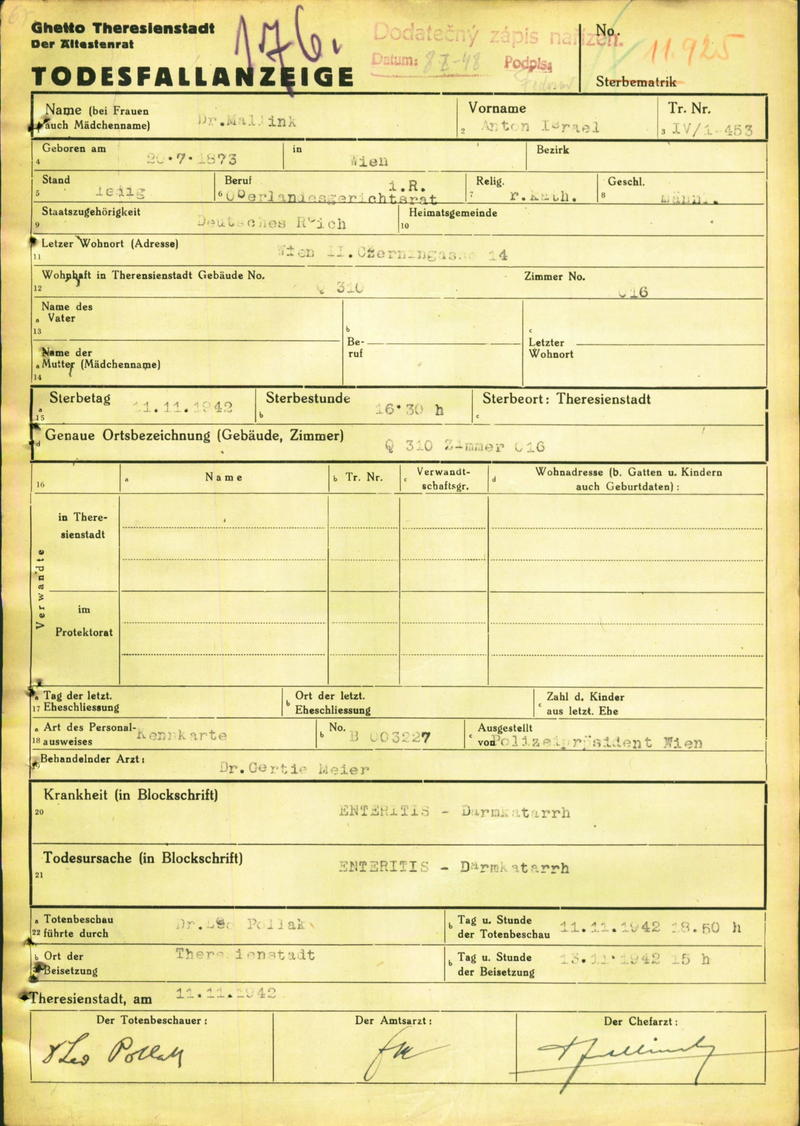 Ghetto Theresienstadt
Der Ältestenrat
TODESFALLANZEIGE
176.
Dodatečný zápis nařízen.
Datum: 8 X-48 Podpis:
No. 11.925
Sterbematrik
Name (bei Frauen auch Mädchenname) Dr.
Vorname 2 Anton Israel
Tr. Nr. 3 IV/1-453
Geboren am 4 7·1873
in Wien
Bezirk
Stand 5 ledig
Beruf 6 Oberlandesgerichtsrat i.R.
Relig. 7 r.kath.
Geschl. 8 männl.
Staatszugehörigkeit 9 Deutsches Reich
Heimatsgemeinde 10
Letzer Wohnort (Adresse) 11 Wien II.Czerningasse 14
Wohnhaft in Theresienstadt Gebäude No. 12 Q 310
Zimmer No. 016
Name des
a Vater
13
b Beruf
c Letzter Wohnort
Name der
a Mutter (Mädchenname)
14
a Sterbetag 15 11.11.1942
Sterbestunde b 16·30 h
Sterbeort: Theresienstadt c
d Genaue Ortsbezeichnung (Gebäude, Zimmer) Q 310 Zimmer 016
16 a Name
b Tr. Nr.
c Verwandtschaftsgr.
d Wohnadresse (b. Gatten u. Kindern auch Geburtdaten) :
Verwandte
in Theresienstadt
im Protektorat
a Tag der letzt.
17 Eheschliessung
b Ort der letzt. Eheschliessung
c Zahl d. Kinder aus letzt. Ehe
a Art des Personal-
18 ausweises Kennkarte
b No. B 003227
c Ausgestellt von Polizeipräsident Wien
Behandelnder Arzt: Dr.Gertie Meier
Krankheit (in Blockschrift)
20 ENTERITIS - Darmkatarrh
Todesursache (in Blockschrift)
21 ENTERITIS - Darmkatarrh
a Totenbeschau
22 führte durch Dr.Leo Pollak
b Tag u. Stunde der Totenbeschau 11.11.1942 18.50 h
b Ort der Beisetzung Theresienstadt
b Tag u. Stunde der Beisetzung 13.11.1942 15 h
Theresienstadt, am 11.11.1942
Der Totenbeschauer:
Der Amtsarzt:
Der Chefarzt:
Leo Pollak